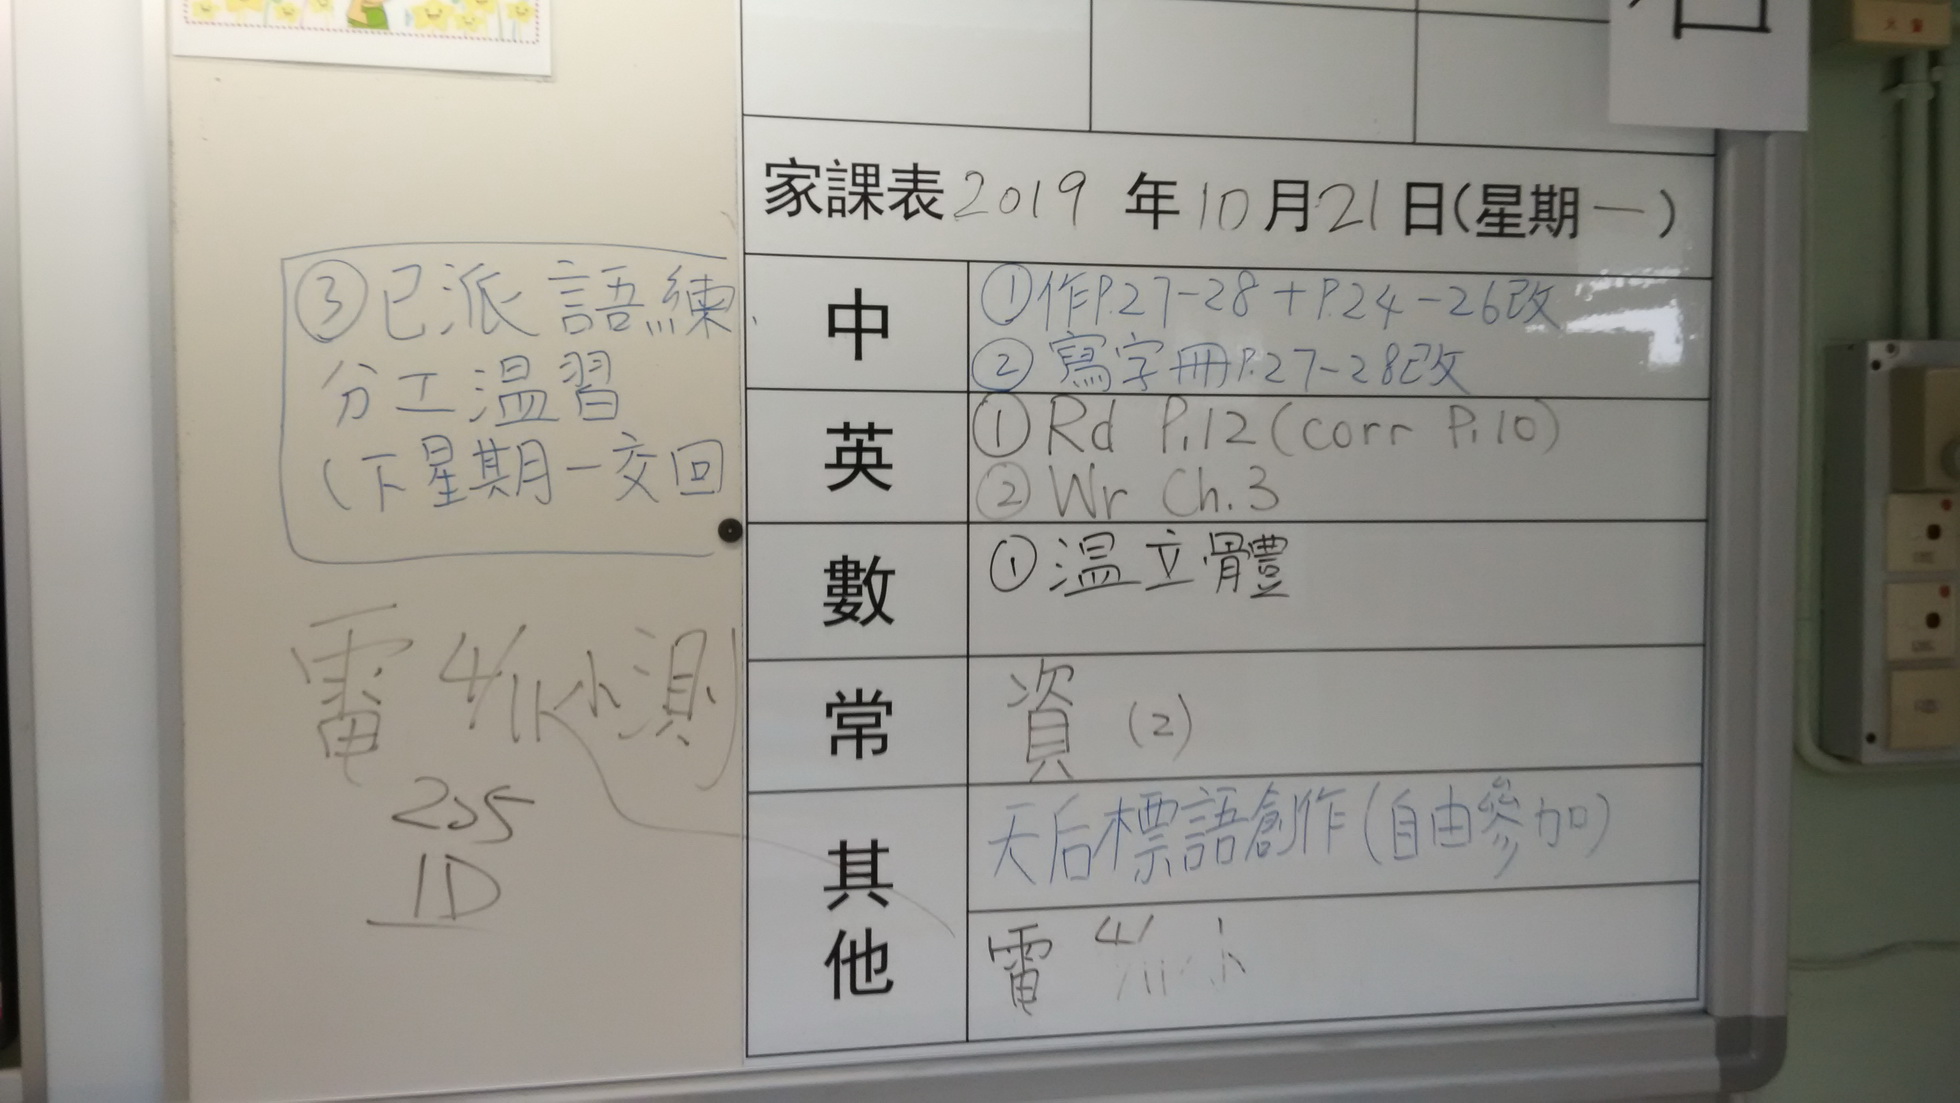 家課表 2019 年 10 月 21 日(星期一)
中
①作P.27-28+P.24-26改
②寫字冊P.27-28改
③已派語練
分工温習
(下星期一交回
英
①Rd P.12(corr P.10)
②Wr Ch.3
數
①温立體
常
資 (2)
其他
天后標語創作(自由參加)
電 4/11
電 4/11 小測
205
1D